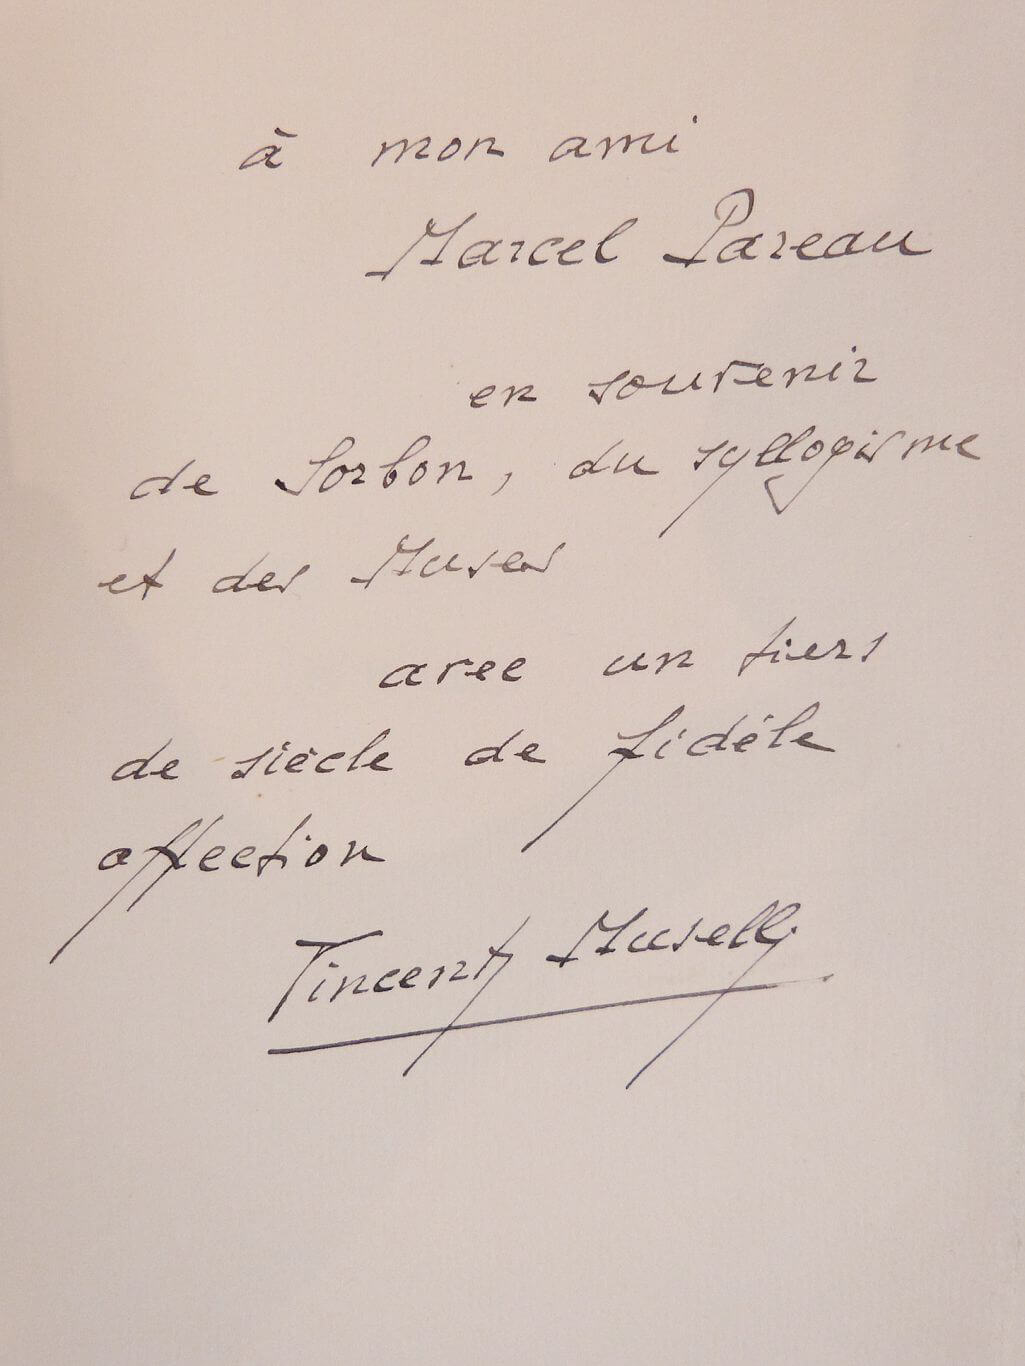 à mon ami
Marcel Pareau
en souvenir
de Sorbon, du syllogisme
et des Muses
avec un tiers
de siècle de fidèle
affection
Vincent Muselli